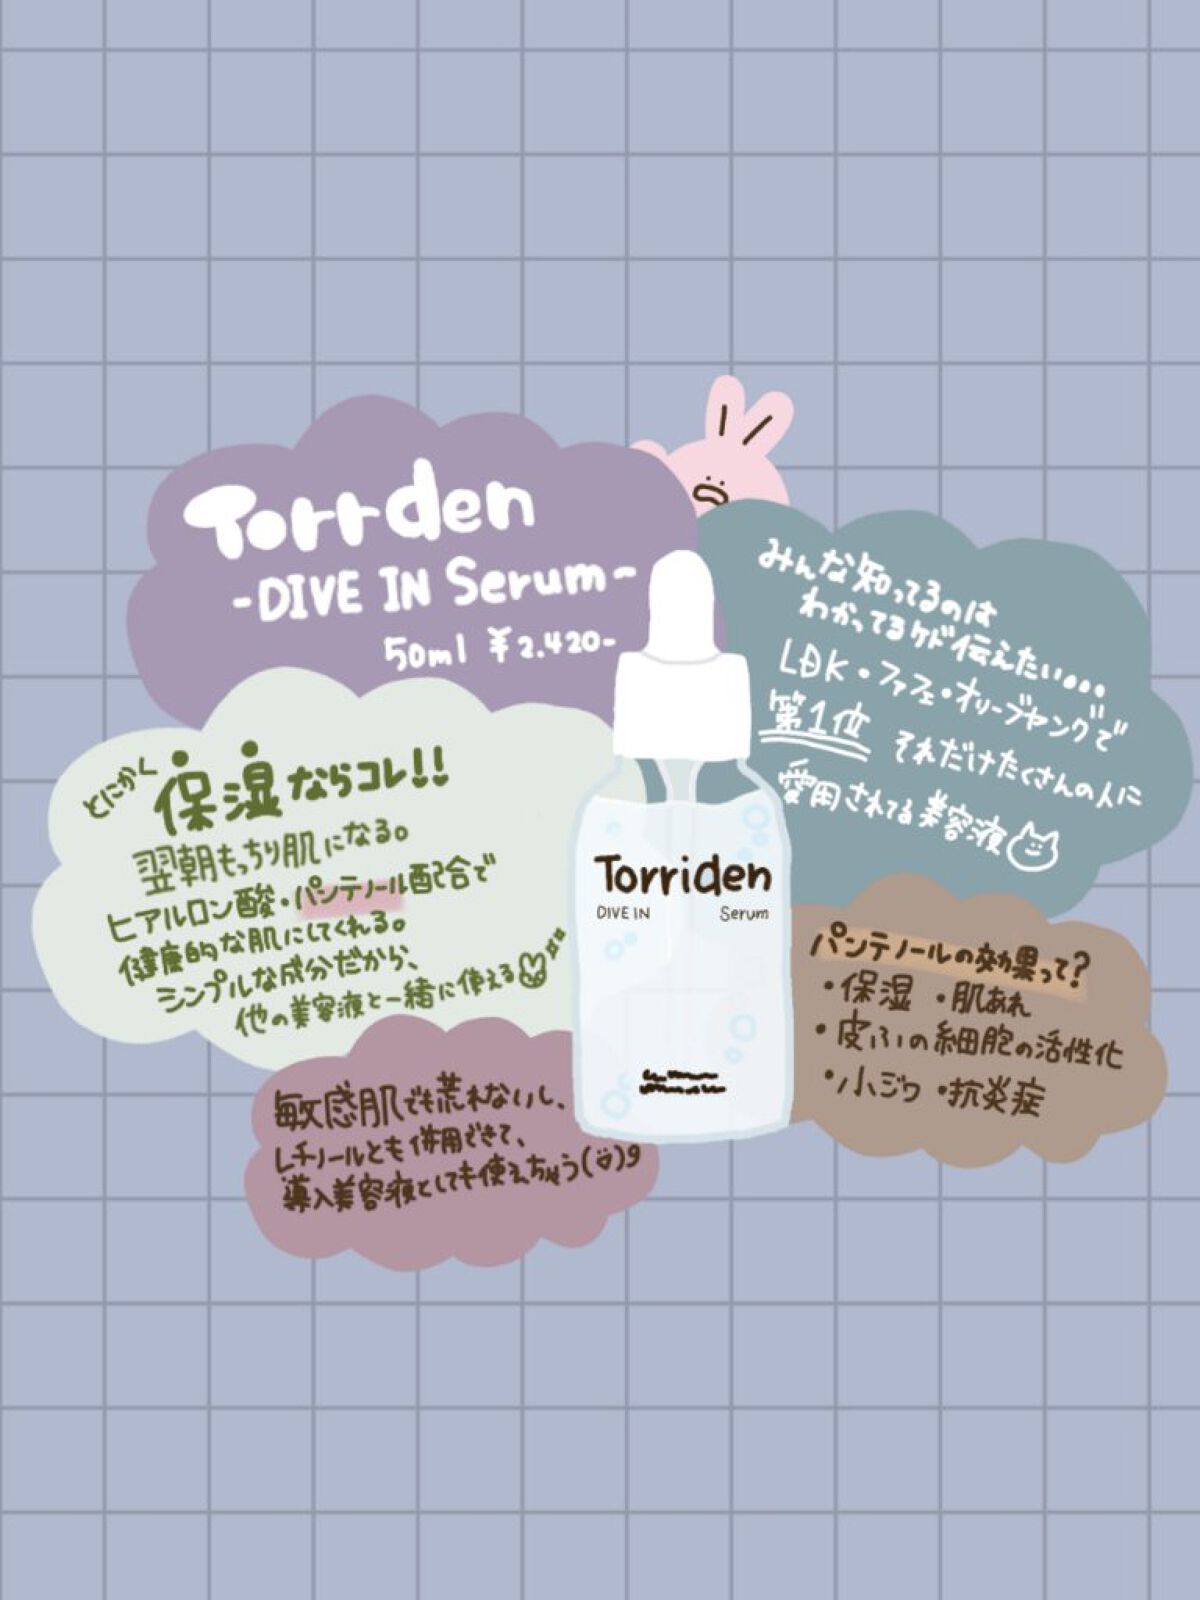 Torrden
-DIVE IN Serum-
50ml ¥2.420-
みんな知ってるのは
わかってるケド伝えたい...
LDK・ファフェ・オリーブヤングで
第1位 それだけたくさんの人に
愛用されてる美容液
とにかく保湿ならコレ!!
翌朝もっちり肌になる。
ヒアルロン酸・パンテノール配合で
健康的な肌にしてくれる。
シンプルな成分だから、
他の美容液と一緒に使える
Torriden
DIVE IN Serum
パンテノールの効果って?
・保湿 ・肌あれ
・皮ふの細胞の活性化
・小ジワ ・抗炎症
敏感肌でも荒れないし、
レチノールとも併用できて、
導入美容液としても使えちゃう